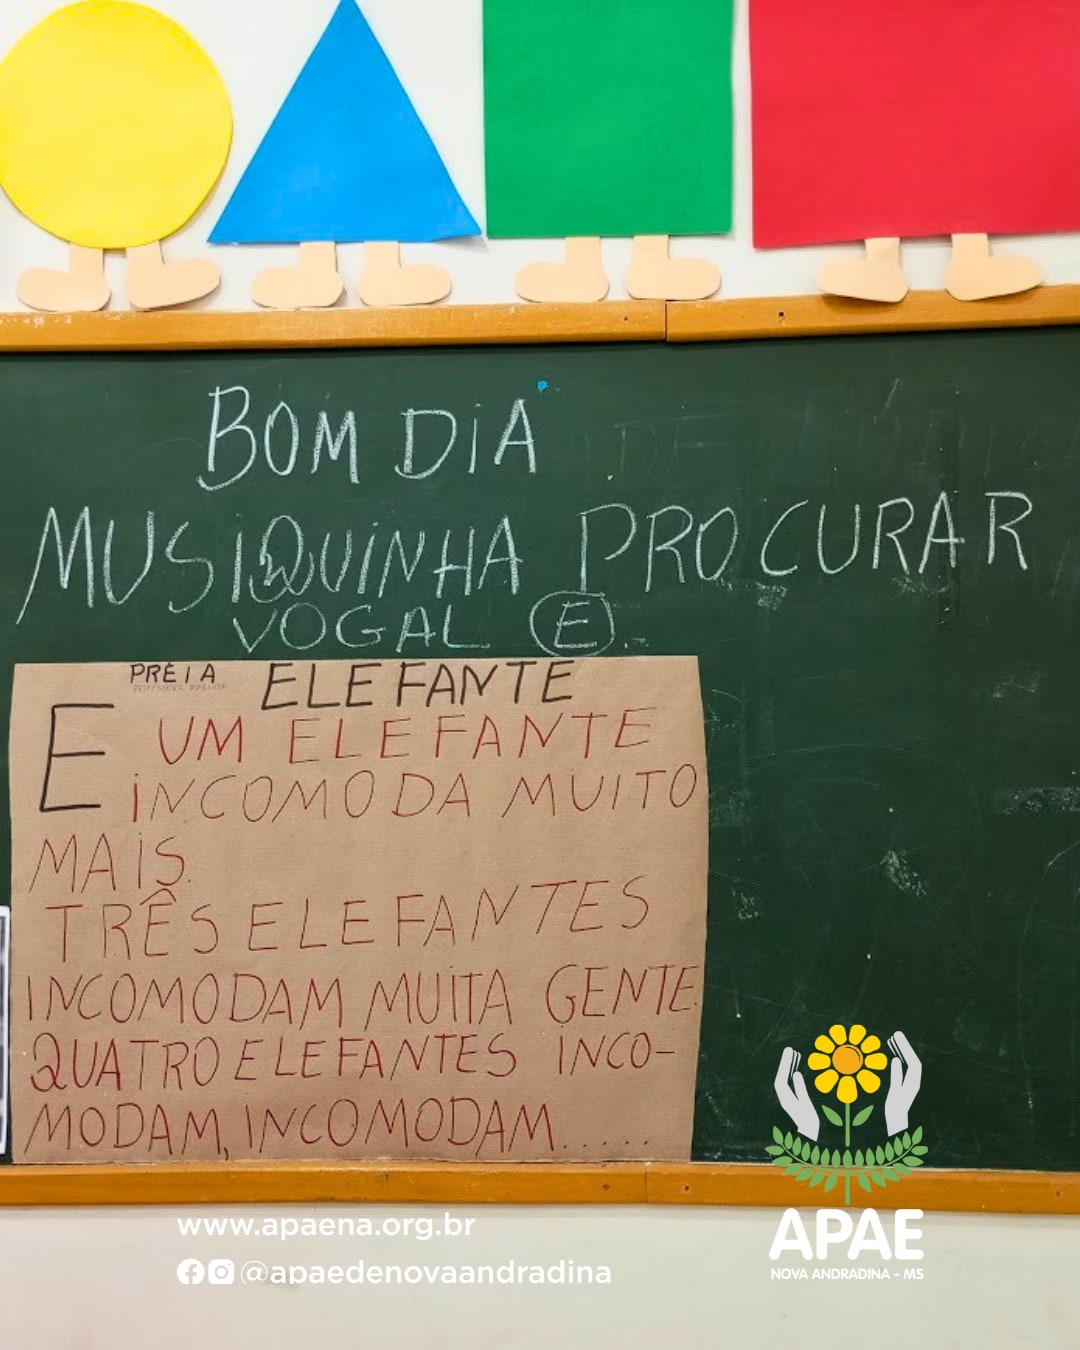 BOM DIA
MUSIQUINHA PROCURAR
VOGAL E
PRÉIA ELEFANTE
E UM ELEFANTE
INCOMODA MUITO
MAIS.
TRÊS ELEFANTES
INCOMODAM MUITA GENTE.
QUATRO ELEFANTES INCO-
MODAM, INCOMODAM.....
www.apaena.org.br
@apaedenovaandradina
APAE
NOVA ANDRADINA - MS